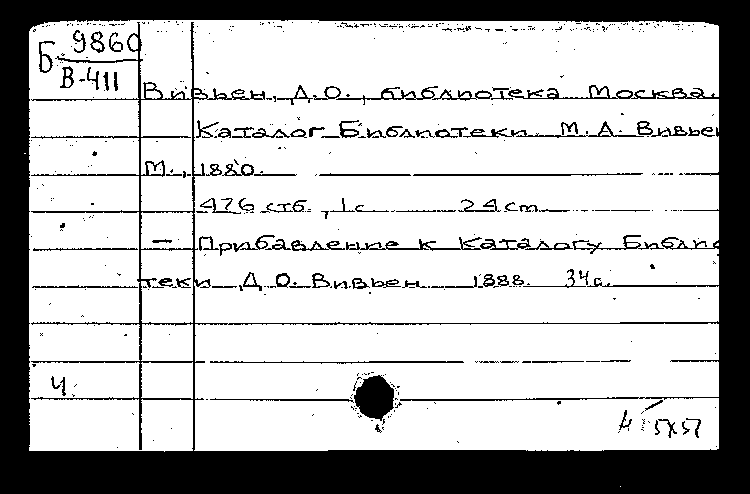 Б 9860
В-411
Вивьен, Д.О., библиотека Москва.
Каталог Библиотеки М. А. Вивьен
М., 1880.
476 стб., 1 с. 24 cm.
— Прибавление к Каталогу Библио
теки Д. О. Вивьен 1888. 34 с.
4